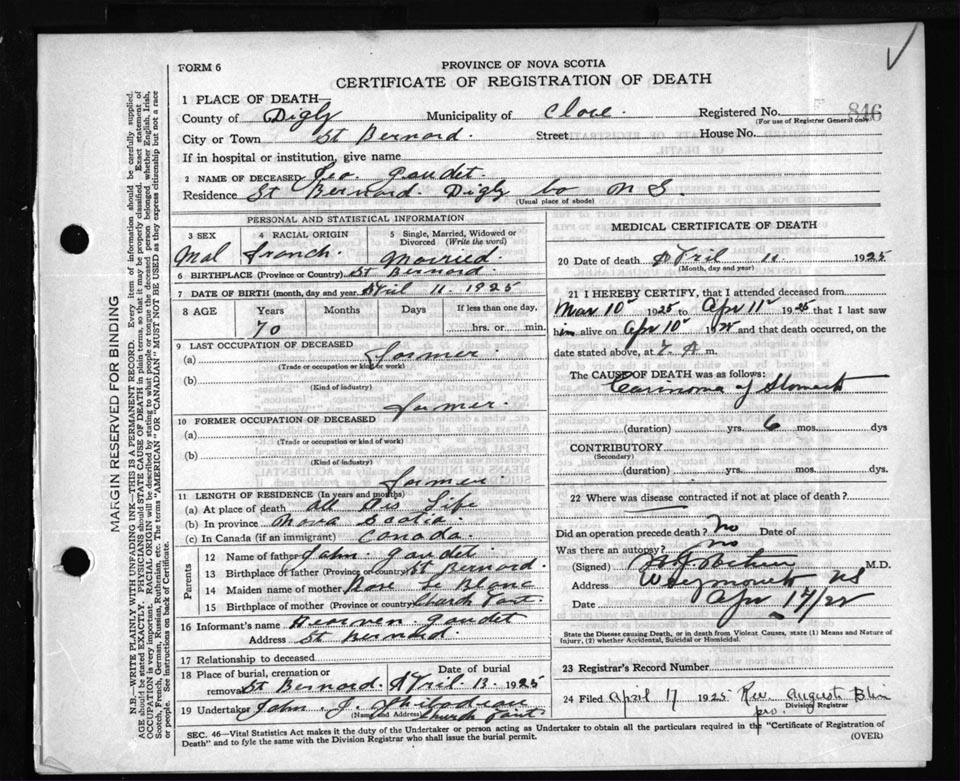 FORM 6
PROVINCE OF NOVA SCOTIA
CERTIFICATE OF REGISTRATION OF DEATH
1 PLACE OF DEATH—
County of Digby Municipality of Clare Registered No. 846
(For use of Registrar General only)
City or Town St Bernard. Street House No.
If in hospital or institution, give name
2 NAME OF DECEASED Geo. Gaudet.
Residence St Bernard. Digby Co N S.
(Usual place of abode)
PERSONAL AND STATISTICAL INFORMATION
3 SEX 4 RACIAL ORIGIN 5 Single, Married, Widowed or Divorced (Write the word)
Mal French. Married.
6 BIRTHPLACE (Province or Country) St Bernard.
7 DATE OF BIRTH (month, day and year) April 11. 1925
8 AGE Years Months Days If less than one day,
70 hrs. or min.
9 LAST OCCUPATION OF DECEASED
(a) Farmer.
(Trade or occupation or kind of work)
(b)
(Kind of industry)
Farmer.
10 FORMER OCCUPATION OF DECEASED
(a)
(Trade or occupation or kind of work)
(b)
(Kind of industry)
Farmer.
11 LENGTH OF RESIDENCE (In years and months)
(a) At place of death All His Life
(b) In province Nova Scotia.
(c) In Canada (if an immigrant) Canada.
Parents
12 Name of father John Gaudet.
13 Birthplace of father (Province or country) St Bernard.
14 Maiden name of mother Rose Le Blanc
15 Birthplace of mother (Province or country) Church Point.
16 Informant's name Gaudet
Address St Bernard.
17 Relationship to deceased
18 Place of burial, cremation or removal Date of burial
St Bernard. April 13. 1925
19 Undertaker John J. Thibodeau
(Name and Address) Church Point
MEDICAL CERTIFICATE OF DEATH
20 Date of death April 11. 1925
(Month, day and year)
21 I HEREBY CERTIFY, that I attended deceased from
Mar 10" 1925 to Apr 11" 1925 that I last saw
him alive on Apr 10" 192 and that death occurred, on
date stated above, at 7. A m.
The CAUSE OF DEATH was as follows:
Carcinoma of Stomach
(duration) yrs. 6 mos. dys
CONTRIBUTORY
(Secondary)
(duration) yrs. mos. dys.
22 Where was disease contracted if not at place of death?
Did an operation precede death? No Date of
Was there an autopsy? no
(Signed) M.D.
Address Weymouth NS
Date Apr 14/25
State the Disease causing Death, or in death from Violent Causes, state (1) Means and Nature of
Injury, (2) whether Accidental, Suicidal or Homicidal.
23 Registrar's Record Number
24 Filed April 17 1925 Rev. Auguste Blin
pro. Division Registrar
SEC. 46—Vital Statistics Act makes it the duty of the Undertaker or person acting as Undertaker to obtain all the particulars required in the "Certificate of Registration of
Death" and to fyle the same with the Division Registrar who shall issue the burial permit. (OVER)
MARGIN RESERVED FOR BINDING
N.B.—WRITE PLAINLY WITH UNFADING INK—THIS IS A PERMANENT RECORD. Every item of information should be carefully supplied.
AGE should be stated EXACTLY. PHYSICIANS should STATE CAUSE OF DEATH in plain terms, so that it may be properly classified. Exact statement of
OCCUPATION is very important. RACIAL ORIGIN will be described by stating to what people or tongue the deceased person belonged whether English, Irish,
Scotch, French, German, Russian, Ruthenian, etc. The terms "AMERICAN" or "CANADIAN" MUST NOT BE USED as they express citizenship but not a race
or people. See instructions on back of Certificate.